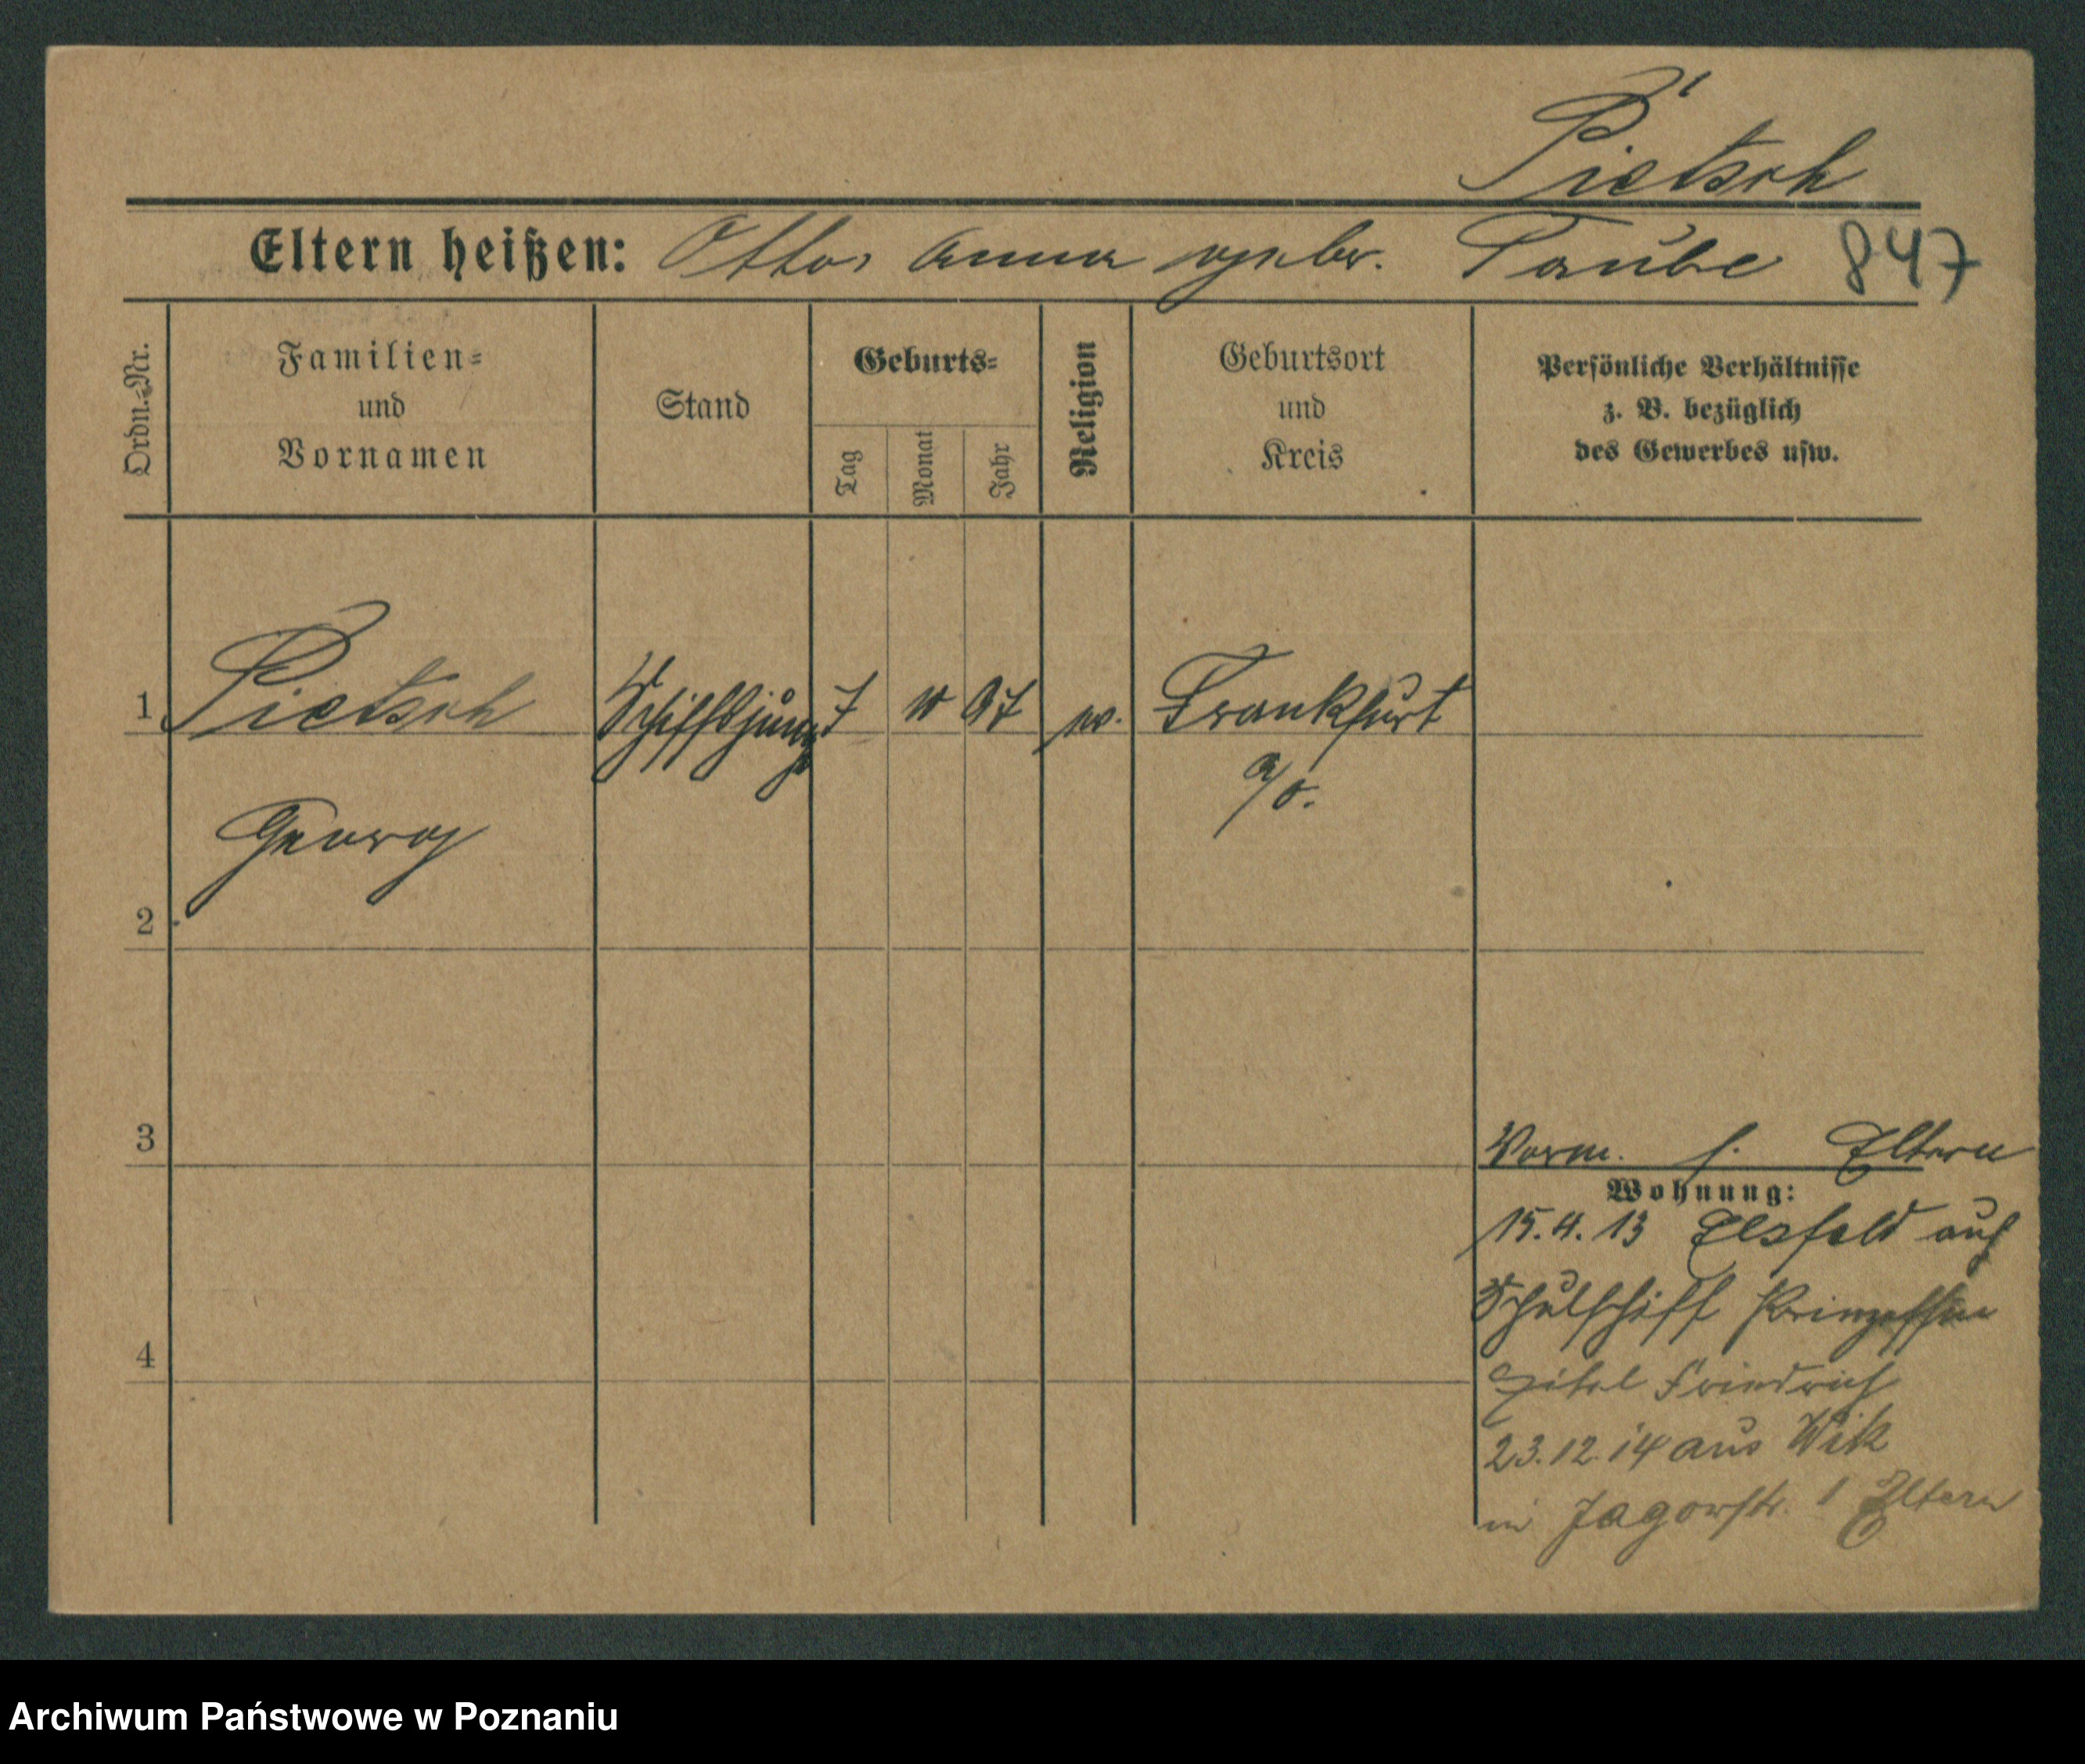 Pietsch
Eltern heißen: Otto, Anna geb. Taube 847
Ordn.-Nr.
Familien-
und
Vornamen
Stand
Geburts-
Tag
Monat
Jahr
Religion
Geburtsort
und
Kreis
Persönliche Verhältnisse
z. B. bezüglich
des Gewerbes usw.
1 Pietsch Schiffsjunge 7 97 ev. Frankfurt
a/O.
Georg
2
3
Vorm. s. Eltern
Wohnung:
15.4.13 Elsfleth auf
Schulschiff Prinzessin
Eitel Friedrich
4
23.12.14 aus Wik
in Jagowstr. Eltern
Archiwum Państwowe w Poznaniu